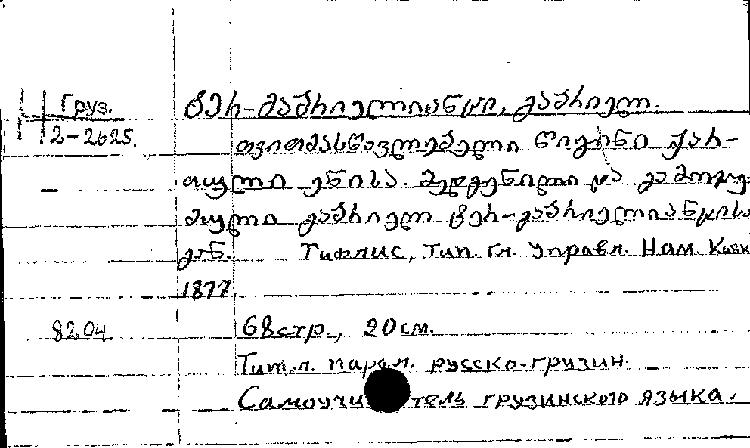 Груз.
2-2625.
ტერ-გაბრიელიანცი, გაბრიელ.
თვითმასწავლებელი წიგნი ქარ-
თული ენისა. შედგენილი და გამოცე-
მული გაბრიელ ტერ-გაბრიელიანცისა
გან. Тифлис, тип. Гл. Управл. Нам. Кавк
1877.
8204. 68стр., 20см.
Тит. л. парал. русско-грузин.
Самоучитель грузинского языка.